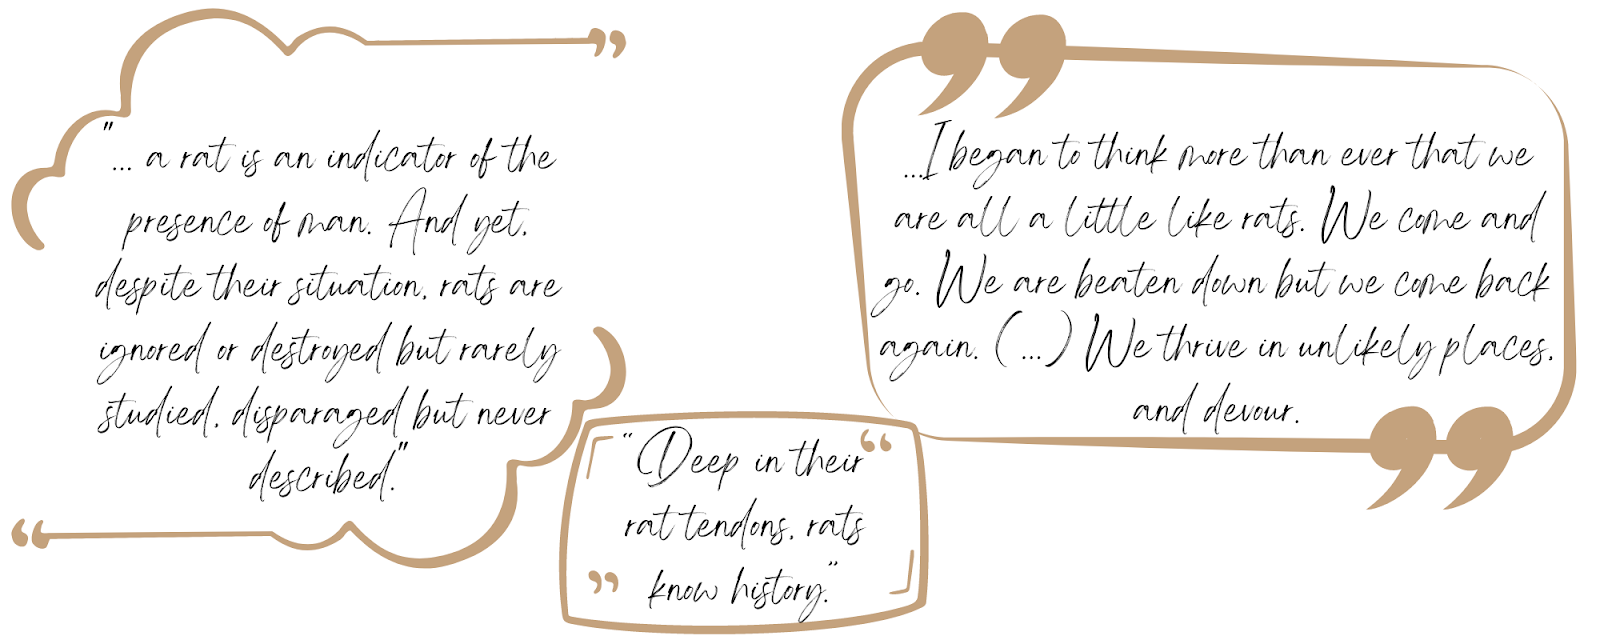 "... a rat is an indicator of the
presence of man. And yet,
despite their situation, rats are
ignored or destroyed but rarely
studied, disparaged but never
described."
...I began to think more than ever that we
are all a little like rats. We come and
go. We are beaten down but we come back
again. (...) We thrive in unlikely places,
and devour.
"Deep in their
rat tendons, rats
know history."